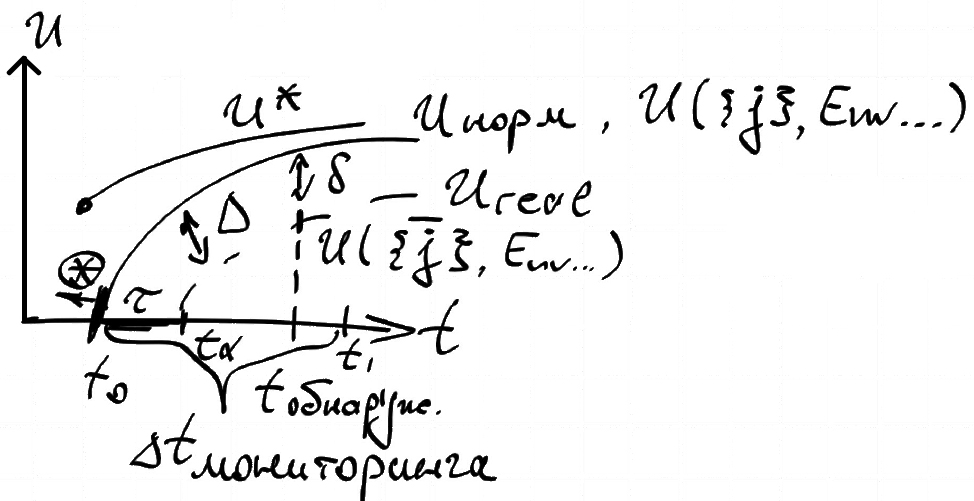 U
U*
Uнорм, U({j}, Env...)
δ
Ureal
Δ
U({j̅}, Env...)
⊛
τ
t
t₀
tα
t₁
tобнаруж.
Δt мониторинга